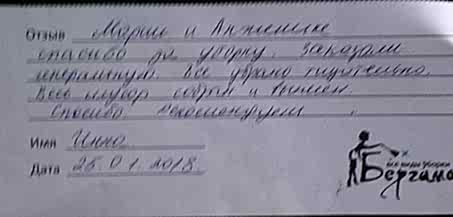 Отзыв Марие и Анжелике
спасибо за уборку. Заказали
генеральную. Все убрано тщательно.
Весь мусор собран и вынесен.
Спасибо. Рекомендуем.
Имя Инна
Дата 26.01.2018.
все виды уборки
Бергамо